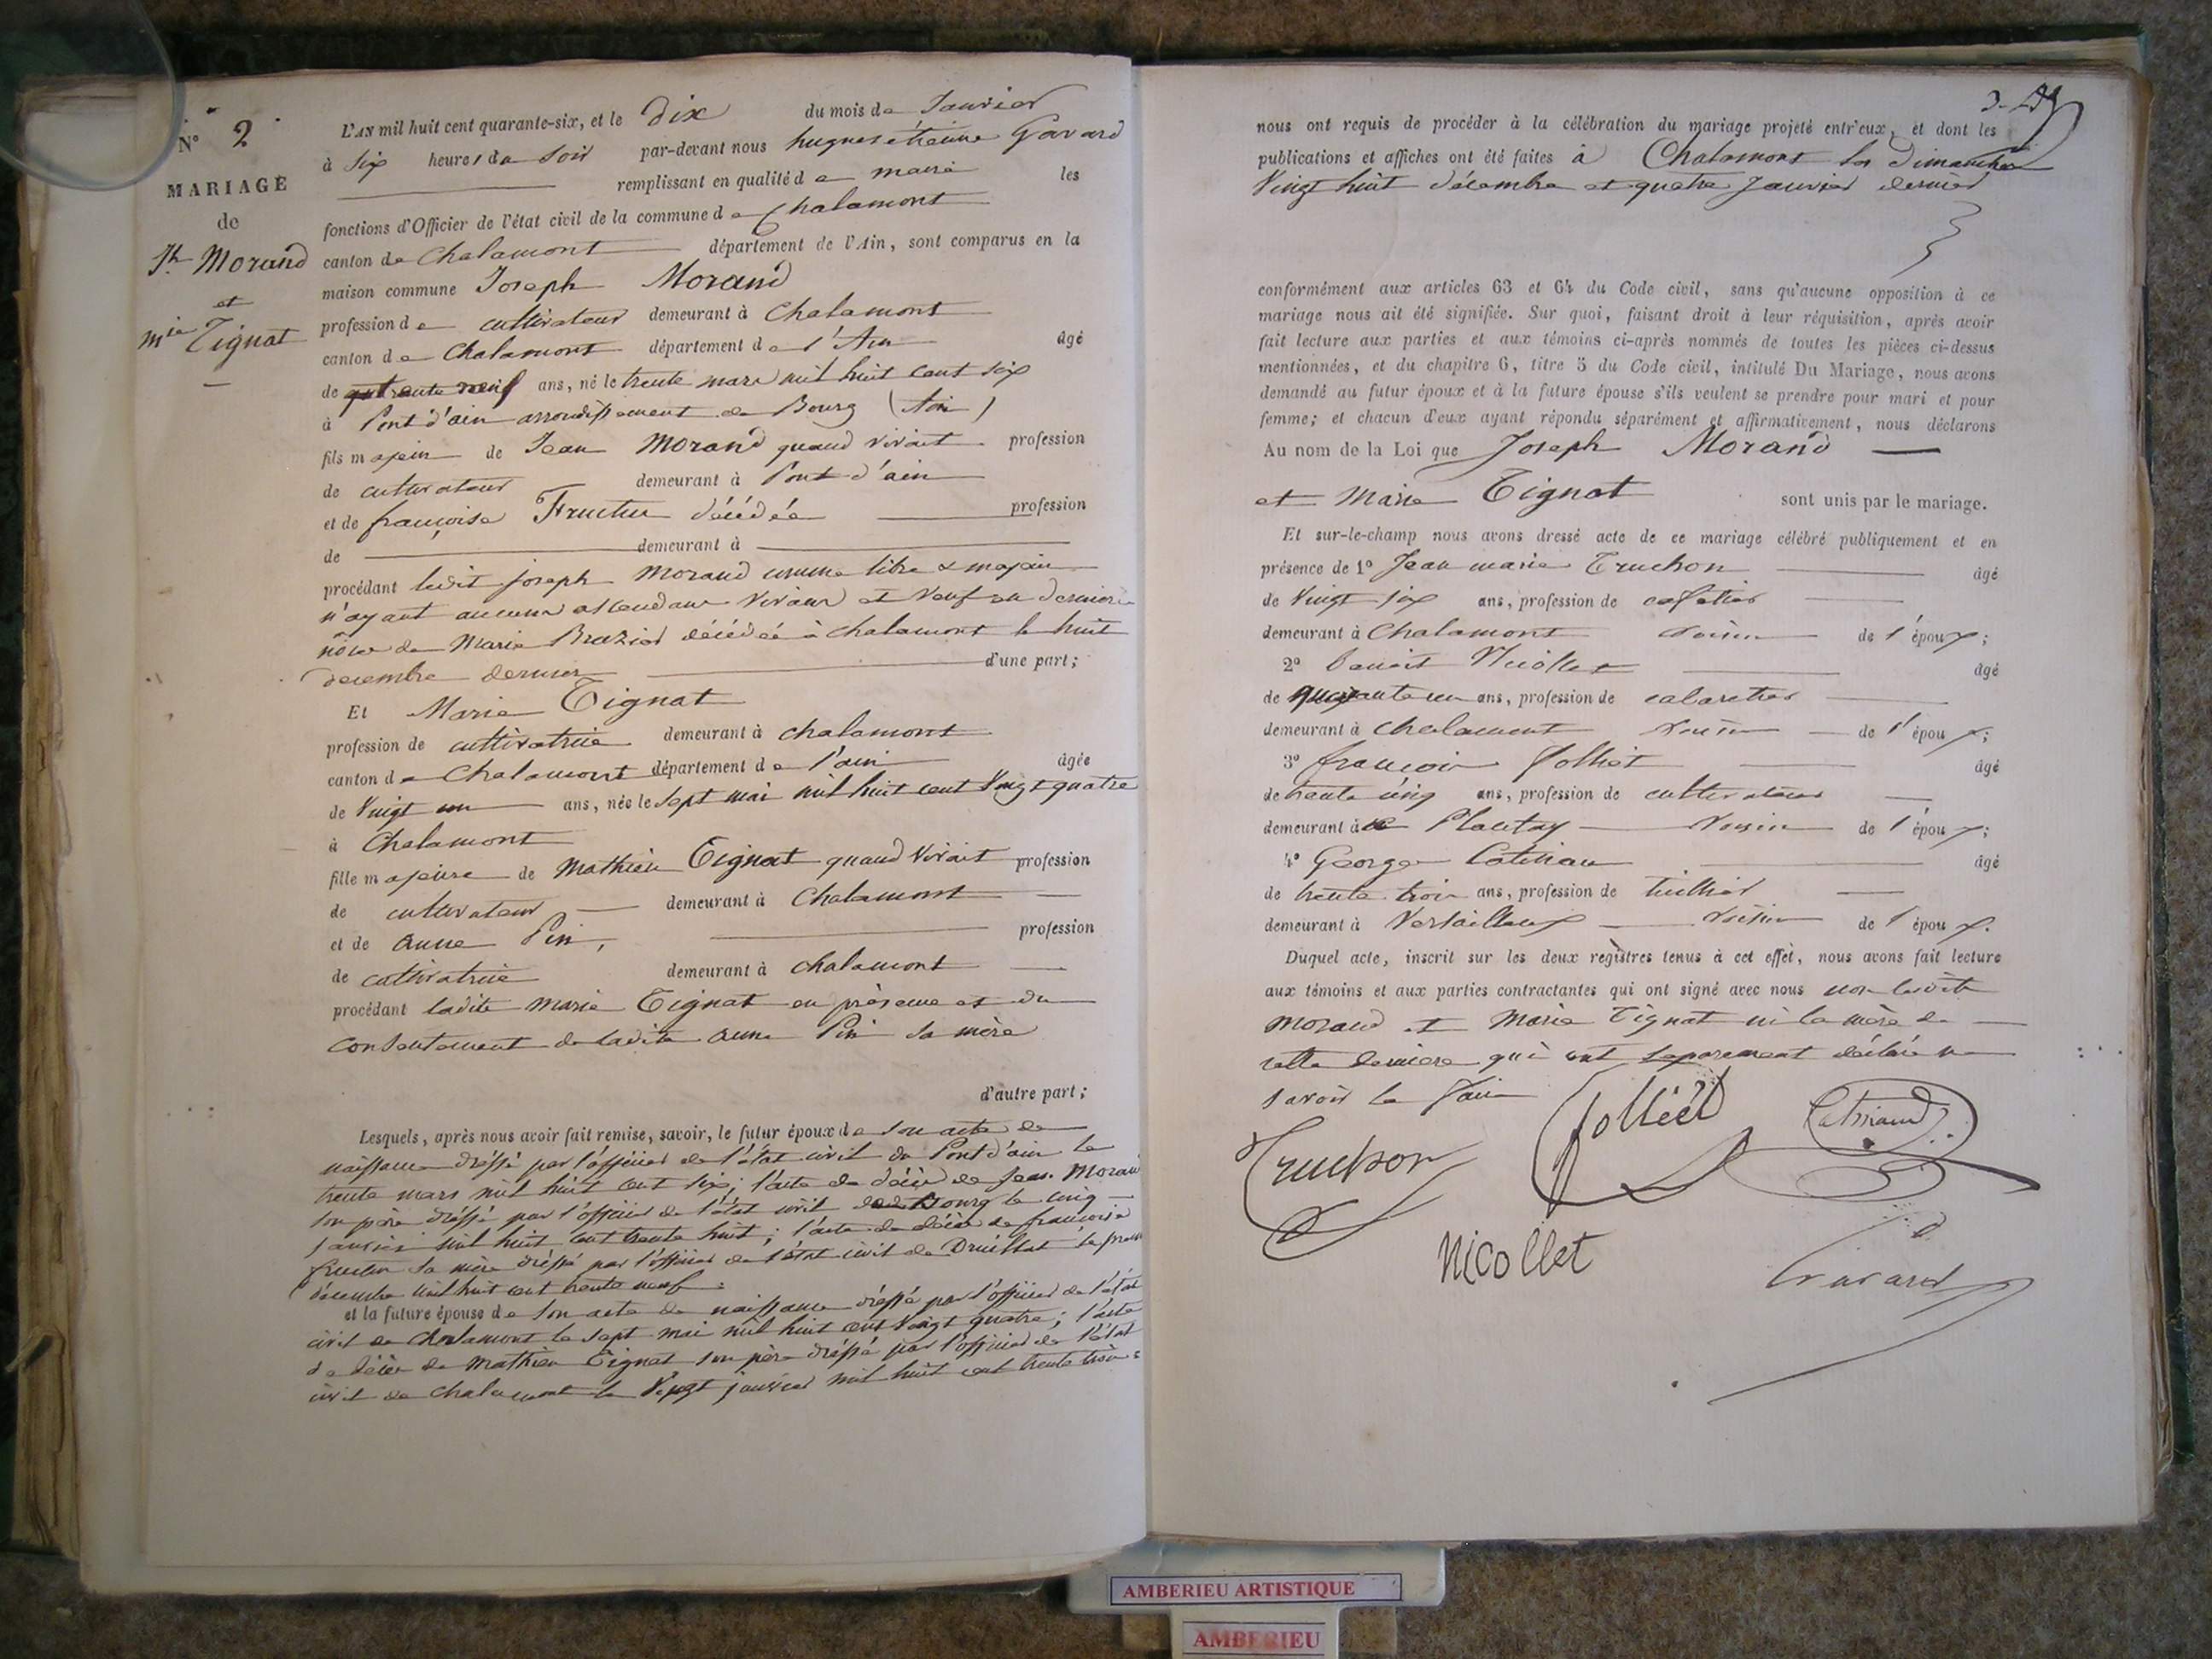 N° 2
MARIAGE
de
Jh Morand
et
mie Tignat
L'AN mil huit cent quarante-six, et le dix du mois de Janvier
à six heures du soir par-devant nous hugues étienne Gavard
remplissant en qualité de maire les
fonctions d'Officier de l'état civil de la commune de Chalamont
canton de Chalamont département de l'Ain, sont comparus en la
maison commune Joseph Morand
profession de cultivateur demeurant à Chalamont
canton de Chalamont département de l'Ain âgé
de trente neuf ans, né le trente mars mil huit cent six
à Pont d'ain arrondissement de Bourg (Ain)
fils majeur de Jean Morand quand vivait profession
de cultivateur demeurant à Pont d'ain
et de françoise décédée profession
de demeurant à
procédant ledit joseph Morand comme libre & majeur
n'ayant aucuns ascendans vivans et veuf en dernière
nôce de Marie Brazier décédée à chalamont le huit
decembre dernier d'une part;
Et Marie Tignat
profession de cultivatrice demeurant à chalamont
canton de Chalamont département de l'ain âgée
de Vingt un ans, née le sept mai mil huit cent vingt quatre
à Chalamont
fille majeure de Mathieu Tignat quand vivait profession
de cultivateur demeurant à Chalamont
et de anne Pin, profession
de cultivatrice demeurant à chalamont
procédant ladite marie Tignat en présence et du
consentement de ladite anne Pin sa mère
d'autre part;
Lesquels, après nous avoir fait remise, savoir, le futur époux de son acte de
naissance dréssé par l'officier de l'état civil de Pont d'ain le
trente mars mil huit cent six; l'acte de décès de Jean Morand
son père dréssé par l'officier de l'état civil de Bourg le cinq
janvier mil huit cent trente huit; l'acte de décès de françoise
sa mère dréssé par l'officier de l'état civil de Druillat le
décembre mil huit cent trente neuf
et la future épouse de son acte de naissance dréssé par l'officier de l'état
civil de Chalamont le sept mai mil huit cent vingt quatre; l'acte
de décès de Mathieu Tignat son père dréssé par l'officier de l'état
civil de chalamont le Vingt janvier mil huit cent trente trois
nous ont requis de procéder à la célébration du mariage projeté entr'eux, et dont les
publications et affiches ont été faites à Chalamont les Dimanches
Vingt huit décembre et quatre Janvier dernier
conformément aux articles 63 et 64 du Code civil, sans qu'aucune opposition à ce
mariage nous ait été signifiée. Sur quoi, faisant droit à leur réquisition, après avoir
fait lecture aux parties et aux témoins ci-après nommés de toutes les pièces ci-dessus
mentionnées, et du chapitre 6, titre 5 du Code civil, intitulé Du Mariage, nous avons
demandé au futur époux et à la future épouse s'ils veulent se prendre pour mari et pour
femme; et chacun d'eux ayant répondu séparément et affirmativement, nous déclarons
Au nom de la Loi que Joseph Morand
et Marie Tignat sont unis par le mariage.
Et sur-le-champ nous avons dressé acte de ce mariage célébré publiquement et en
présence de 1° Jean marie Truchon âgé
de Vingt six ans, profession de cafetier
demeurant à Chalamont voisin de l'époux;
2° benoit Nicollet âgé
de ans, profession de cabaretier
demeurant à chalamont voisin de l'époux;
3° françois Jolliet âgé
de trente cinq ans, profession de cultivateur
demeurant à le Plantay voisin de l'époux;
4° George Catiniau âgé
de trente trois ans, profession de tuillier
demeurant à Versailleux voisin de l'époux.
Duquel acte, inscrit sur les deux registres tenus à cet effet, nous avons fait lecture
aux témoins et aux parties contractantes qui ont signé avec nous non ledit
Morand et Marie Tignat ni la mère de
cette dernière qui ont séparement déclaré ne
savoir le faire
Truchon
Jolliet
Catiniaud
Nicollet
Gavard
AMBERIEU ARTISTIQUE
AMBERIEU